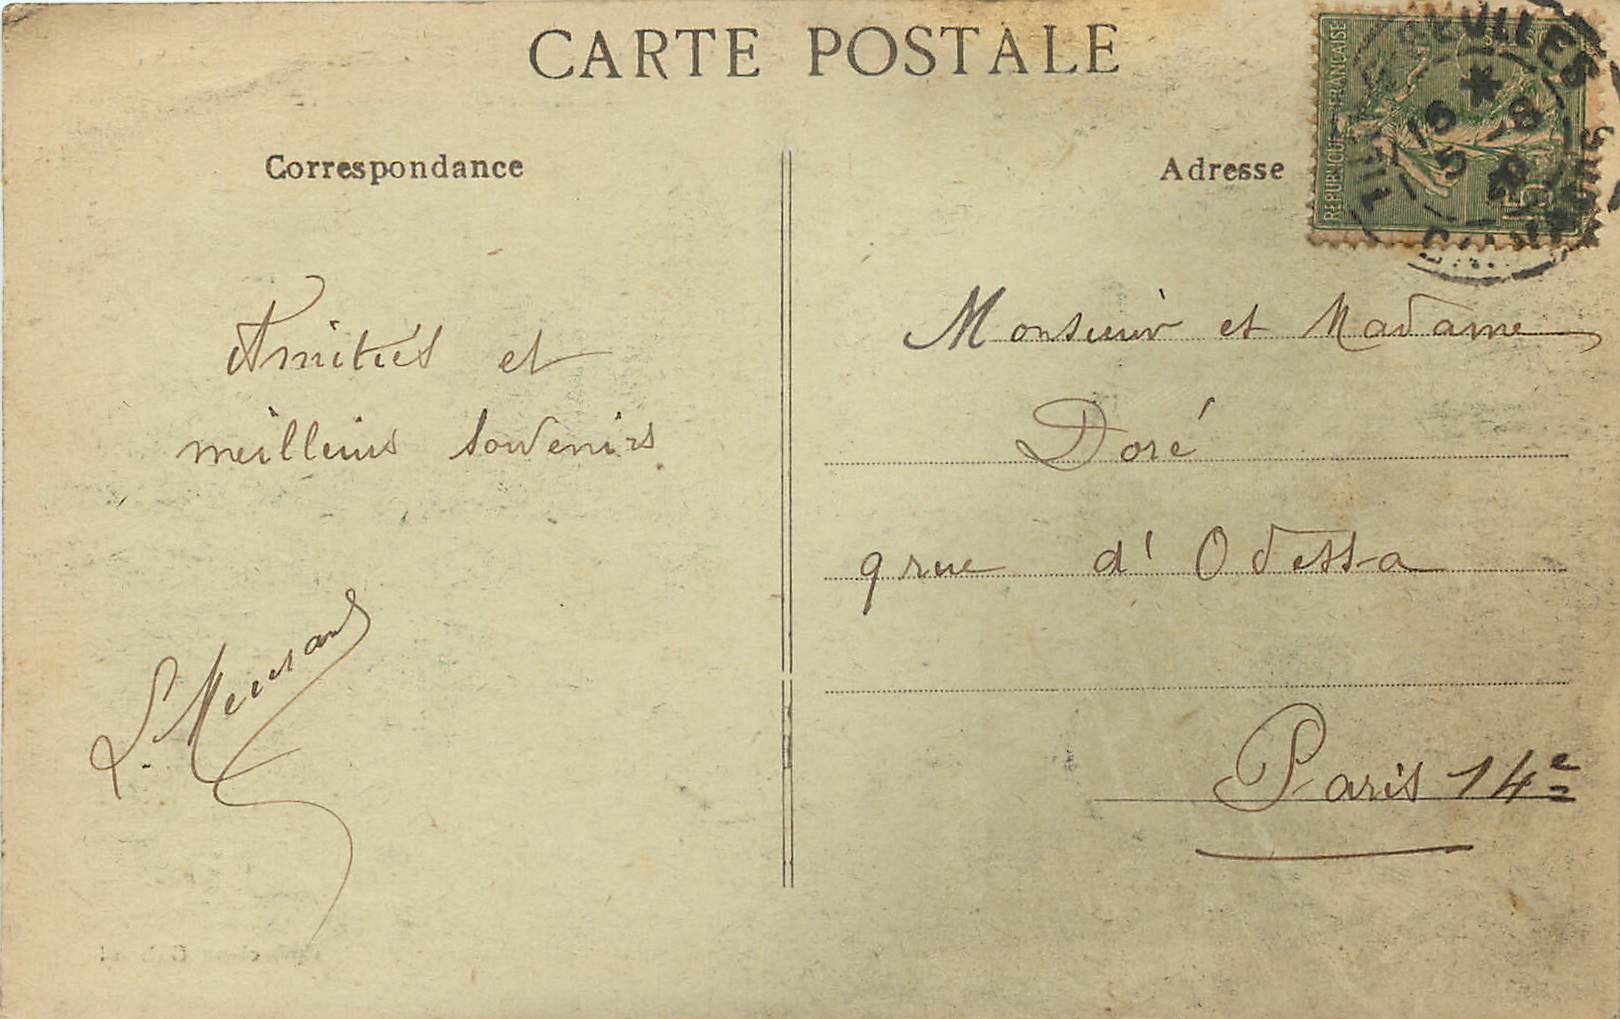 CARTE POSTALE
Correspondance
Adresse
REPUBLIQUE FRANÇAISE
15
Amitiés et
meilleurs souvenirs
Monsieur et Madame
Doré
9 rue d'Odessa
Paris 14e